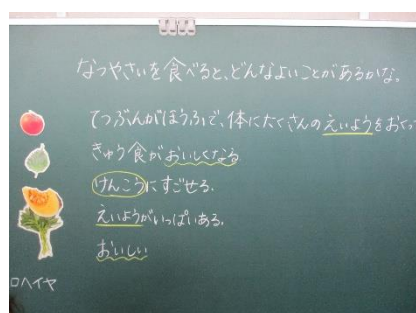 なつやさいを食べると、どんなよいことがあるかな。
てつぶんがほうふで、体にたくさんのえいようをおくって
きゅう食がおいしくなる
けんこうにすごせる。
えいようがいっぱいある。
おいしい
ロヘイヤ